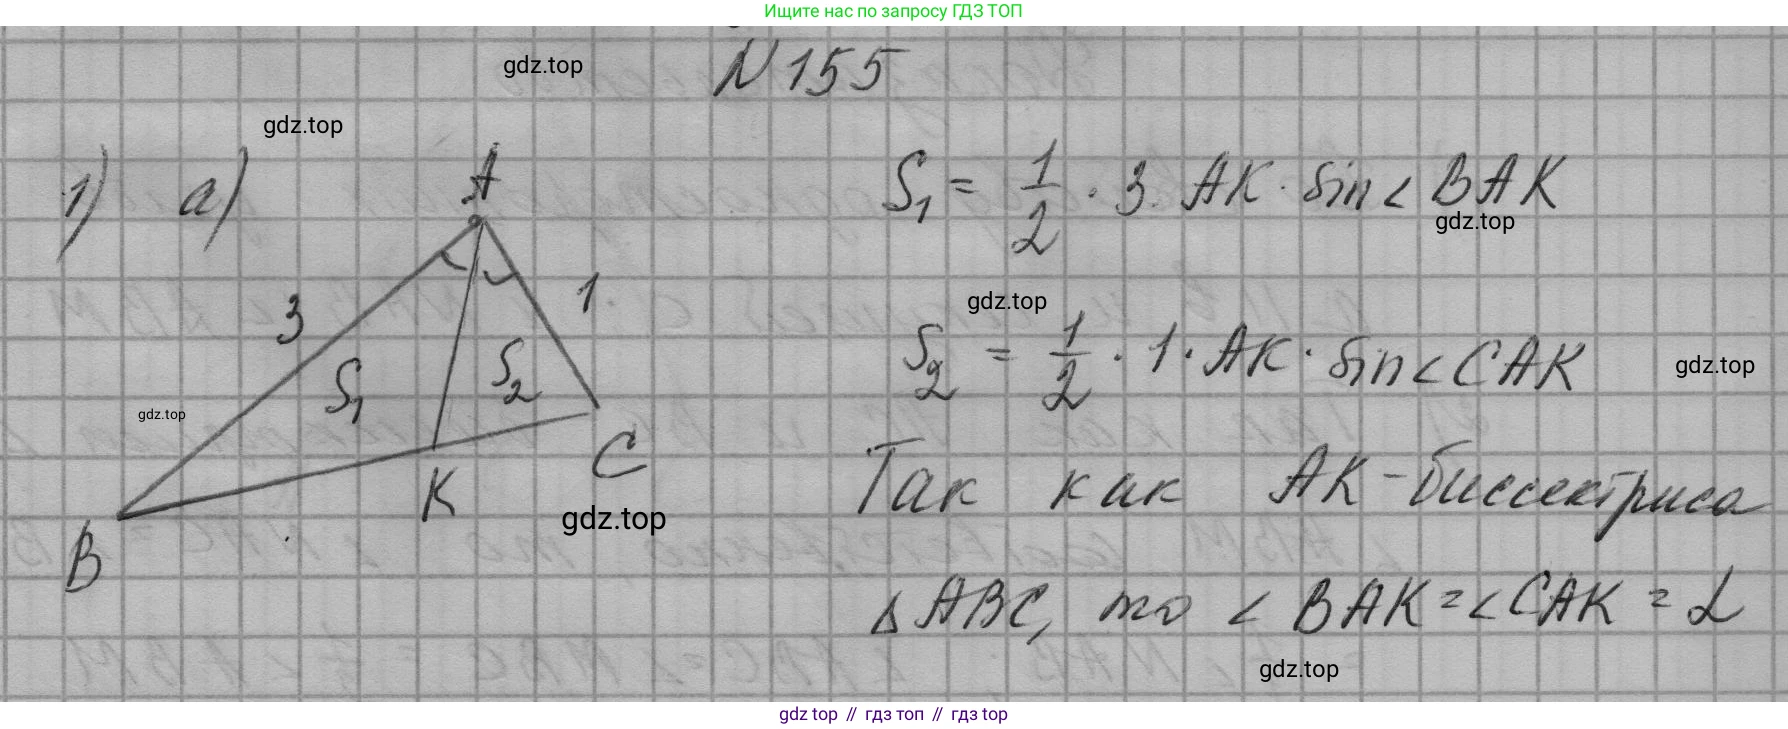 Ищите нас по запросу ГДЗ ТОП
N 155
gdz.top
gdz.top
1) а)
A
3
1
S₁
S₂
B
K
C
gdz.top
gdz.top
S₁ = 1/2 · 3 · AK · sin∠BAK
gdz.top
gdz.top
S₂ = 1/2 · 1 · AK · sin∠CAK
gdz.top
Так как AK – биссектриса
△ABC, то ∠BAK = ∠CAK = α
gdz.top
gdz top // гдз топ // гдз top